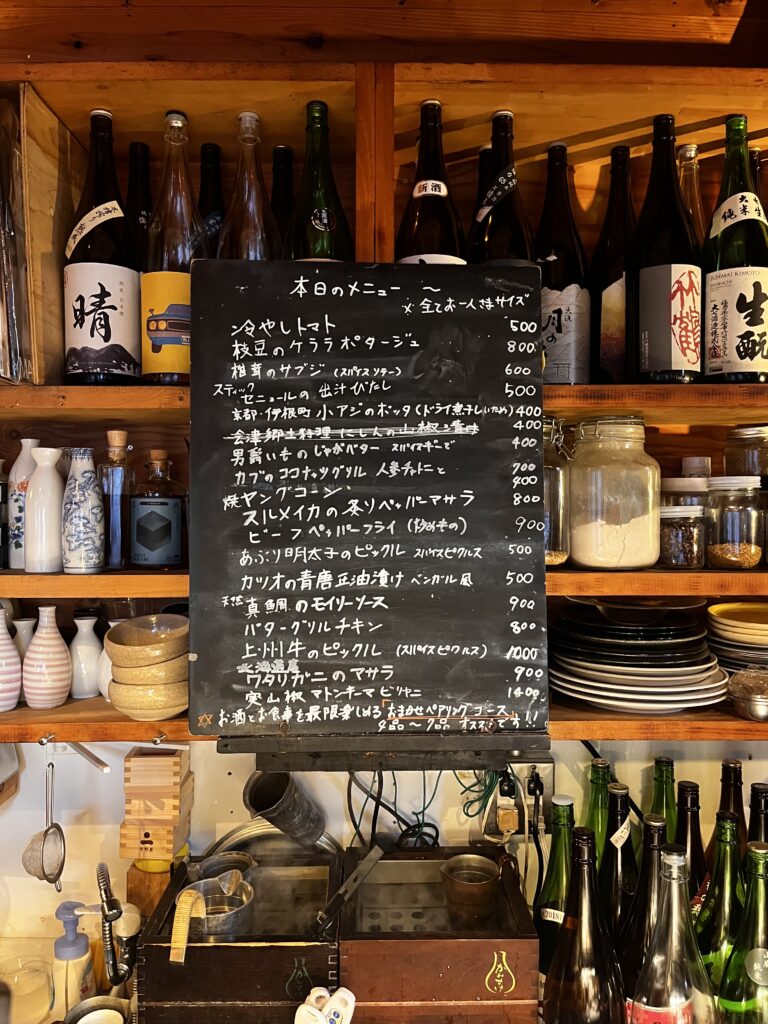 本日のメニュー 〜
※全てお一人さまサイズ
冷やしトマト 500
枝豆のケララポタージュ 800
椎茸のサブジ (スパイスソテー) 600
スティック
セニョールの 出汁びたし 500
京都・伊根町 小アジのポッタ(ドライ煮干しいため) 400
会津郷土料理 にしんの山椒漬け 400
男爵いものじゃがバター スパイスギーで 400
カブのココナッツグリル 人参チャトニと 700
焼ヤングコーン 400
スルメイカの冬リペッパーマサラ 800
ビーフペッパーフライ (炒めもの) 900
あぶり明太子のピックル スパイスピクルス 500
カツオの青唐正油漬け ベンガル風 500
天然 真鯛のモイリーソース 900
バターグリルチキン 800
上州牛のピックル (スパイスピクルス) 1000
北海道産
ワタリガニのマサラ 900
実山椒マトンキーマビリヤニ 1400
お酒とお食事を最限楽しめる「おまかせペアリングコース」
4品〜7品 オススメです!!
晴
新酒
月の
竹鶴
純米
JUNMAI KIMOTO
生酛
大七酒造株式会社
2018